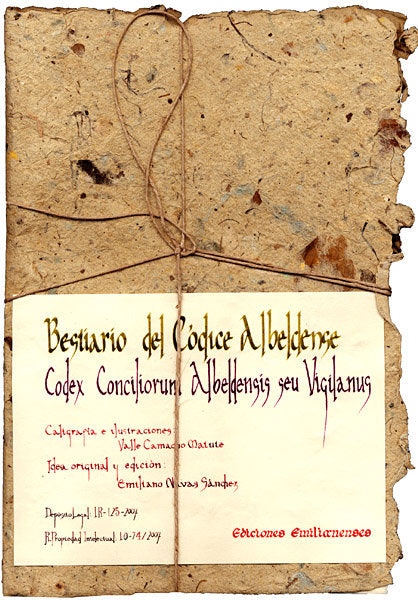 Bestiario del Códice Albeldense
Codex Conciliorum Albeldensis seu Vigilanus
Caligrafía e ilustraciones:
Valle Camacho Matute
Idea original y edición:
Emiliano Navas Sánchez
Depósito Legal: LR-125-2004
R. Propiedad Intelectual: LO-74/2004
Ediciones Emilianenses